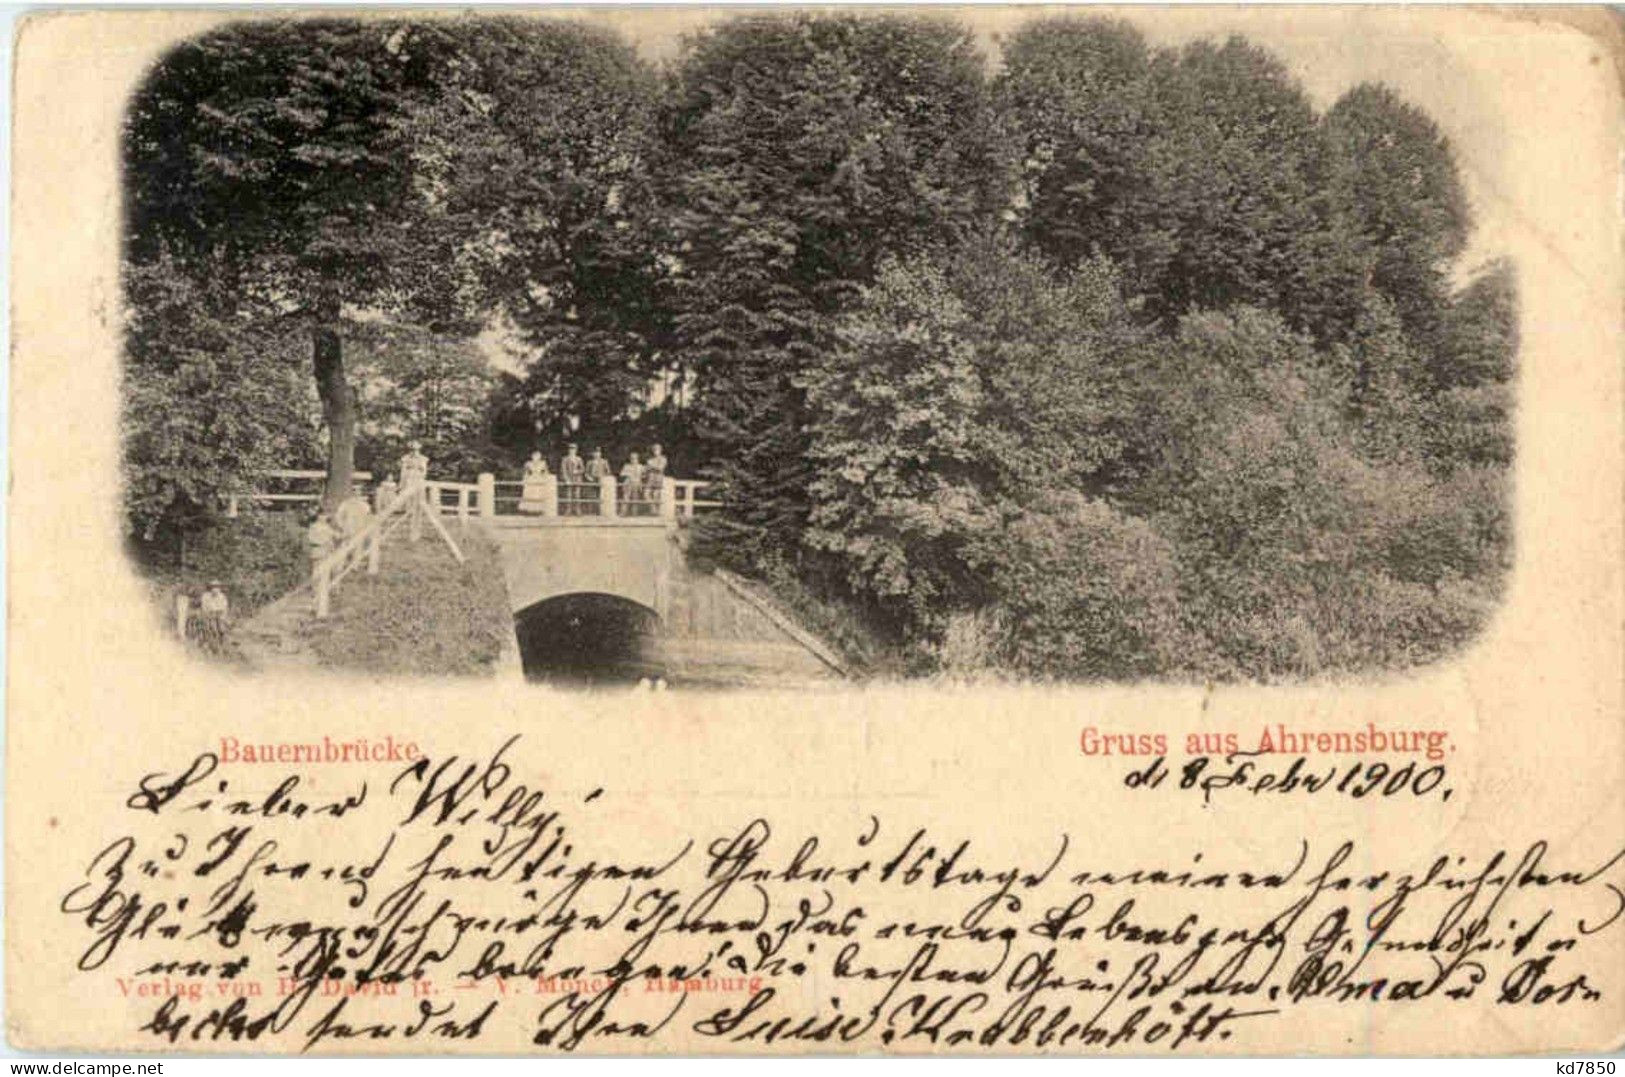 Bauernbrücke.
Gruss aus Ahrensburg.
d. 8 Febr 1900.
Lieber Willy!
Zu Ihrem heutigen Geburtstage meinen herzlichsten
Glückwunsch möge Ihnen das neue Lebensjahr Gesundheit u
nur Gutes bringen! Die besten Grüsse an Oma u
Verlag von H. David jr. — V. Mönch, Hamburg
sendet Ihre Luise Krabbenhöft.
kd7850